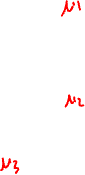 μ1
μ2
μ3